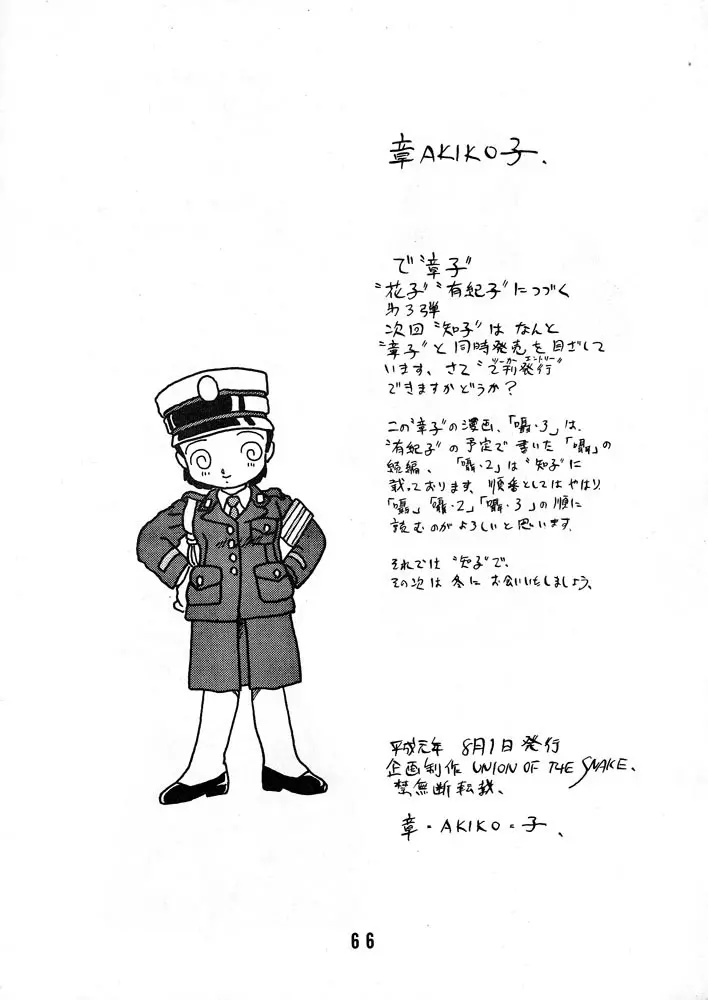 章AKIKO子、
で“章子”
“花子”“有紀子”につづく
第3弾
次回“知子”は なんと
“章子”と同時発売を目ざして
います、さて“2刊発行”
ツーカー エントリー
できますかどうか?
この“章子”の漫画、「囁・3」は、
“有紀子”の予定で書いた「囁」の
続編、「囁・2」は“知子”に
載っております、順番としてはやはり
「囁」「囁・2」「囁・3」の順に
読むのがよろしいと思います、
それでは “知子”で、
その次は 冬に お会いいたしましょう、
平成元年 8月1日 発行
企画制作 UNION OF THE SNAKE、
禁無断転載、
章-AKIKO-子、
66